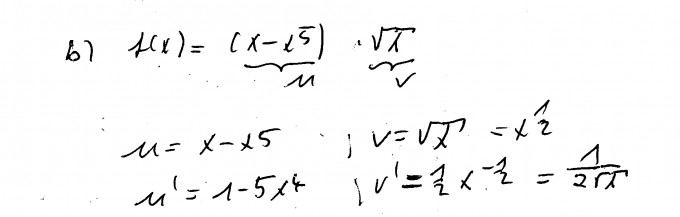 b) f(x) = (x-x⁵) · √x
u v
u = x-x5 ; v = √x = x^½
u' = 1-5x⁴ ; v' = ½ x^-½ = 1/(2√x)